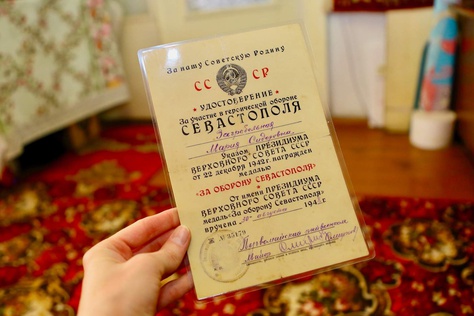 За нашу Советскую Родину
СС СР
УДОСТОВЕРЕНИЕ
За участие в героической обороне
СЕВАСТОПОЛЯ
Мария Сидоровна
Указом ПРЕЗИДИУМА
ВЕРХОВНОГО СОВЕТА СССР
от 22 декабря 1942 г. награжден
медалью
«ЗА ОБОРОНУ СЕВАСТОПОЛЯ»
От имени ПРЕЗИДИУМА
ВЕРХОВНОГО СОВЕТА СССР
медаль «За оборону Севастополя»
вручена августа 194
№
Майор